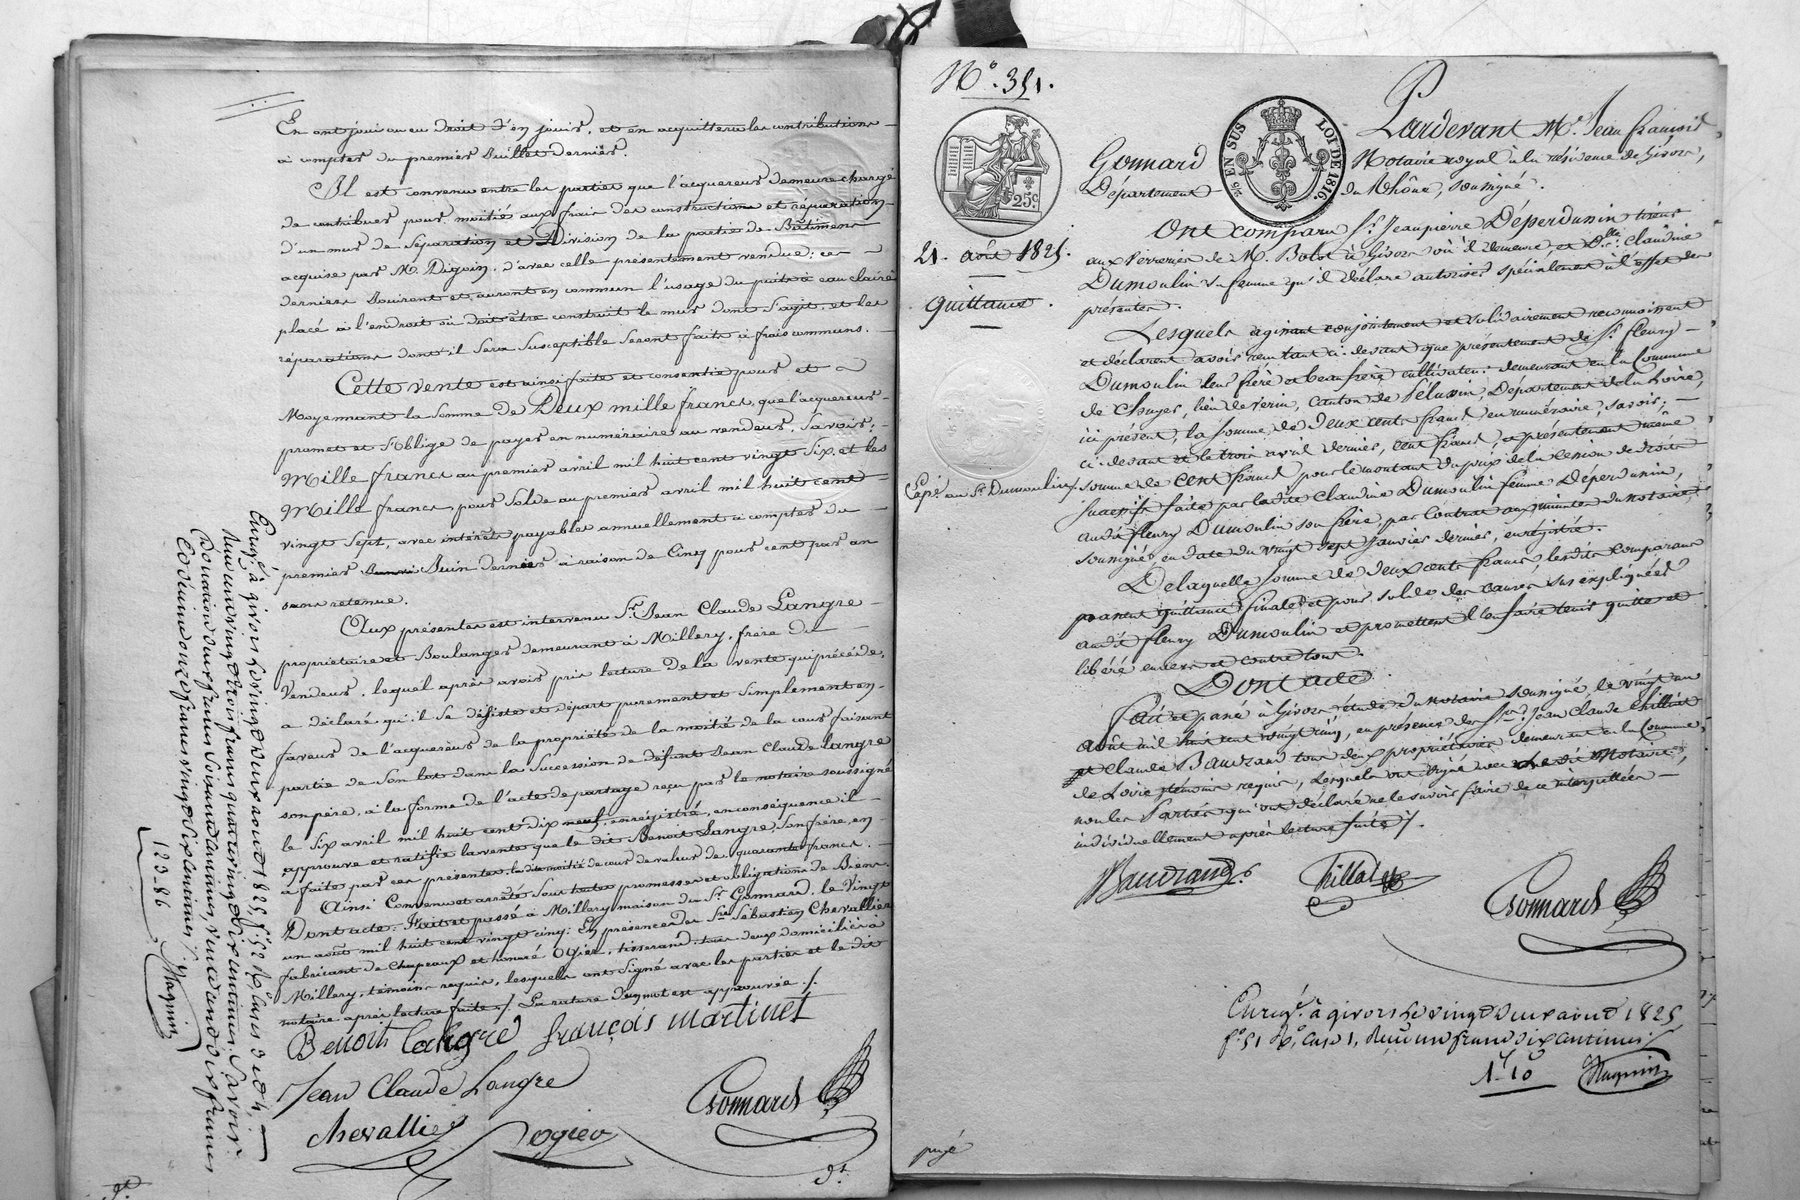 En ont joui ou eu droit d'en jouir, et en acquittera les contributions
à compter du premier Juillet dernier.
Il est convenu entre les parties que l'acquereur demeure chargé
de contribuer pour moitié aux frais des constructions et réparations
d'un mur de séparation et Division de la partie de Bâtimens
acquise par M. Diguin, d'avec celle présentement vendue; ces
derniers Jouiront et auront en commun l'usage du puits à eau claire
placé à l'endroit où doit être construit le mur dont s'agit, et les
réparations dont il sera susceptible seront faites à frais communs.
Cette vente est ainsi faite et consentie pour et
Moyennant la somme de Deux mille francs, que l'acquereur
promet et s'oblige de payer en numéraire au vendeur, Savoir:
Mille francs au premier avril mil huit cent vingt six, et les
Mille francs pour Solde au premier avril mil huit cent
vingt sept, avec intérêts payables annuellement à compter du
premier Juin dernier à raison de Cinq pour cent par an
sans retenue.
Aux présentes est intervenu Sr. Jean Claude Langre
propriétaire et Boulanger demeurant à Millery, frère du
Vendeur, lequel après avoir pris lecture de la vente qui précède,
a déclaré qu'il se désiste et départ purement et simplement en
faveur de l'acquereur de la propriété de la moitié de la cour faisant
partie de Son lot dans la Succession de défunt Jean Claude Langre
son père, à la forme de l'acte de partage reçu par le notaire soussigné
le Six avril mil huit cent dix neuf, enrégistré, en conséquence il
approuve et ratifie la vente que le dit Benoit Langre, Son frère, en
a faite par ces présentes, la dite moitié de cour de valeur de quarante francs.
Ainsi Convenu et arrêté Sous toutes promesses et obligations de Biens.
Dont acte. Fait et passé à Millery maison du Sr. Gonnard, le Vingt
un août mil huit cent vingt cinq; En présence des Srs. Sébastien Chevallier
fabricant de Chapeaux et honoré Ogier, tisserand, tous deux domiciliés à
Millery, témoins requis, lesquels ont signé avec les parties et le dit
notaire après lecture faite ./. La rature d'un mot est approuvée ./.
Benoit Langre françois martinet
Jean Claude Langre
Chevallier Ogier Gonnard
Enregé. à givors le vingt deux aout 1825, fo. 52 Ro. cases 3 et 4,
Reçu cent vingt trois francs quatre vingt six centimes, Savoir:
123-86
Magnin
No. 351.
25c
25 EN SUS LOI DE 1816.
21. août 1825.
Quittance.
Expé. au Sr. Dumoulin ./.
Pardevant Me. Jean françois
Gonnard Notaire royal à la résidence de Givors,
Département du Rhône, soussigné.
Ont comparu Sr. Jean pierre Déperdunin tireur
aux Verreries de M. Bolot à Givors où il demeure et Dlle. Claudine
Dumoulin sa femme qu'il déclare autoriser spécialement à l'effet des
présentes.
Lesquels agissant conjointement et solidairement reconnoissent
et déclarent avoir reçu tant ci-devant que présentement de Sr. fleury
Dumoulin leur frère et beau frère cultivateur demeurant en la Commune
de Chuyer, lieu de verin, canton de Pélussin, Département de la Loire,
ici présent, la somme de deux cents francs en numéraire, savoir;
ci-devant et le trois avril dernier, cent francs, et présentement même
somme de cent francs pour le montant du prix de la cession de droits
successifs faite par ladite Claudine Dumoulin femme Déperdunin,
audit fleury Dumoulin son frère, par Contrat aux minutes du notaire
soussigné en date du vingt sept Janvier dernier, enregistré.
De laquelle somme de deux cents francs lesdits comparans
passent quittance finale et pour solde des causes sus expliquées
audit fleury Dumoulin et promettent l'en faire tenir quitte et
libéré envers et contre tous.
Dont acte.
Fait et passé à Givors étude du notaire soussigné, le vingt un
août mil huit cent vingt cinq, en présence des Srs. Jean Claude Thillat
et Claude Baudrand tous deux propriétaires demeurant en la Commune
de Loire témoins requis, lesquels ont signé avec le dit Notaire,
non les Parties qui ont déclaré ne le savoir faire de ce interpellées
individuellement après lecture faite ./.
Baudrand Thillat Gonnard
Enregé. à givors le vingt deux aout 1825
fo. 51 Ro. case 1, Reçu un franc dix centimes ./.
1f 10c Magnin
payé